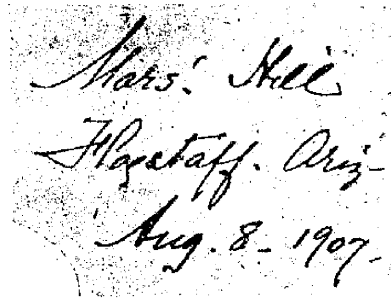 Mars' Hill
Flagstaff. Ariz-
Aug. 8- 1907.